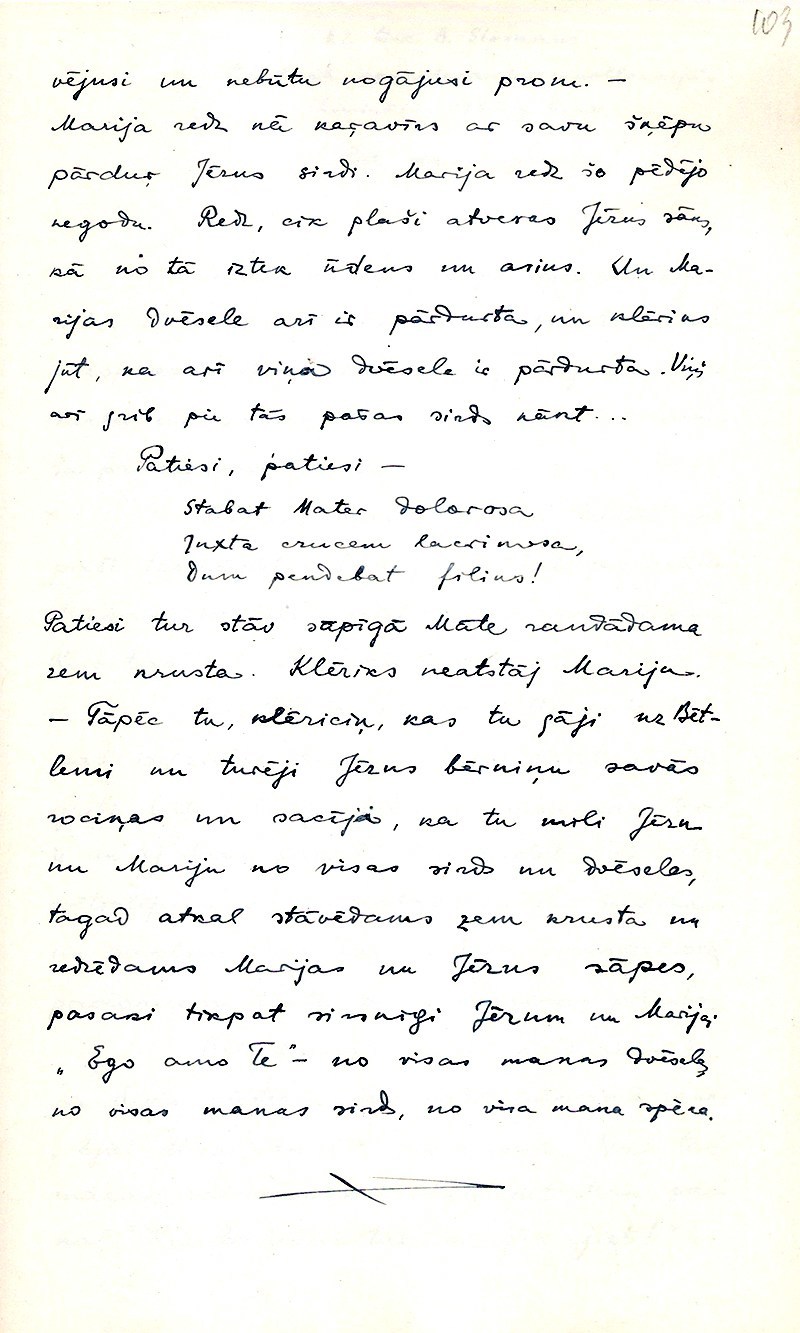 103
vējusi un nebūtu nogājusi prom. —
Marija redz kā kaŗavīrs ar savu šķēpu
pārduŗ Jēzus sirdi. Marija redz šo pēdējo
negodu. Redz, cik plaši atveras Jēzus sāns,
kā no tā iztek ūdens un asins. Un Ma-
rijas dvēsele arī ir pārdurta, un klēriks
jūt, ka arī viņa dvēsele ir pārdurta. Viņš
arī grib pie tās pašas sirds nākt...
Patiesi, patiesi —
Stabat Mater dolorosa
Juxta crucem lacrimosa,
Dum pendebat filius!
Patiesi tur stāv sāpīgā Māte raudādama
zem krusta. Klēriks neatstāj Mariju.
— Tāpēc tu, klēriciņ, kas tu gāji uz Bēt-
lemi un turēji Jēzus bērniņu savās
rociņas un sacīja, ka tu mīli Jēzu
un Mariju no visas sirds un dvēseles,
tagad atkal stāvēdams zem krusta un
redzēdams Marijas un Jēzus sāpes,
pasaki tikpat sirsnīgi Jēzum un Marijai
„Ego amo Te" — no visas manas dvēseles
no visas manas sirds, no visa mana spēka.